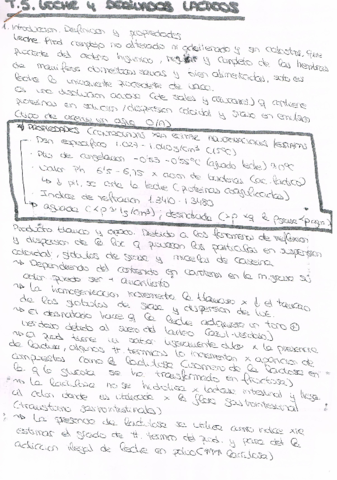 T.5. LECHE Y DERIVADOS LÁCTEOS
1. Introducción. Definición y propiedades
Leche: Prod. completo no alterado ni adulterado y sin calostros, que
procede del ordeño higiénico, regular y completo de las hembras
de mamíferos domésticos sanas y bien alimentadas, solo es
leche la procedente de vaca.
Es una disolución acuosa (de sales y azúcares) q contiene
proteínas en solución / dispersión coloidal y grasa en emulsión
PROPIEDADES
· Den específica 1.029 - (15ºC)
· Pto de congelación -0'53 -0'55ºC (aguado leche)
· Valor PH 6'5 - 6'75 x acción de bacterias (ac. láctico)
↓ pH, se corta la leche (proteínas coagulados)
· Índice de refracción 1.340 - 1.3480
Producto blanco y opaco. Debido a los fenómenos de reflexión
y dispersión de la luz q provocan las partículas en suspensión
coloidal, glóbulos de grasa y micelas de caseína.
→ Dependiendo del contenido en caroteno en la m. grasa su
color puede ser + amarillento
→ La homogeneización incrementa la blancura x el tamaño
de los glóbulos de grasa y dispersión de luz
→ El desnatado hace q la leche adquiera un tono
verdoso debido al suero del lácteo (azul-verdoso)
→ El prod. tiene un sabor ligeramente dulce x la presencia
de lactosa, algunos tt térmicos lo incrementan x aparición de
compuestos como la lactulosa (isómero de la lactosa en
la q la glucosa se ha transformado en fructosa)
→ La lactulosa no se hidroliza x lactasa intestinal y llega
al colon donde es utilizada x la flora gastrointestinal
(trastornos gastrointestinales)
→ La presencia de lactulosa se utiliza como índice xa
estimar el grado de tt térmico del prod. y para det la
adición ilegal de leche en polvo (lactulosa)